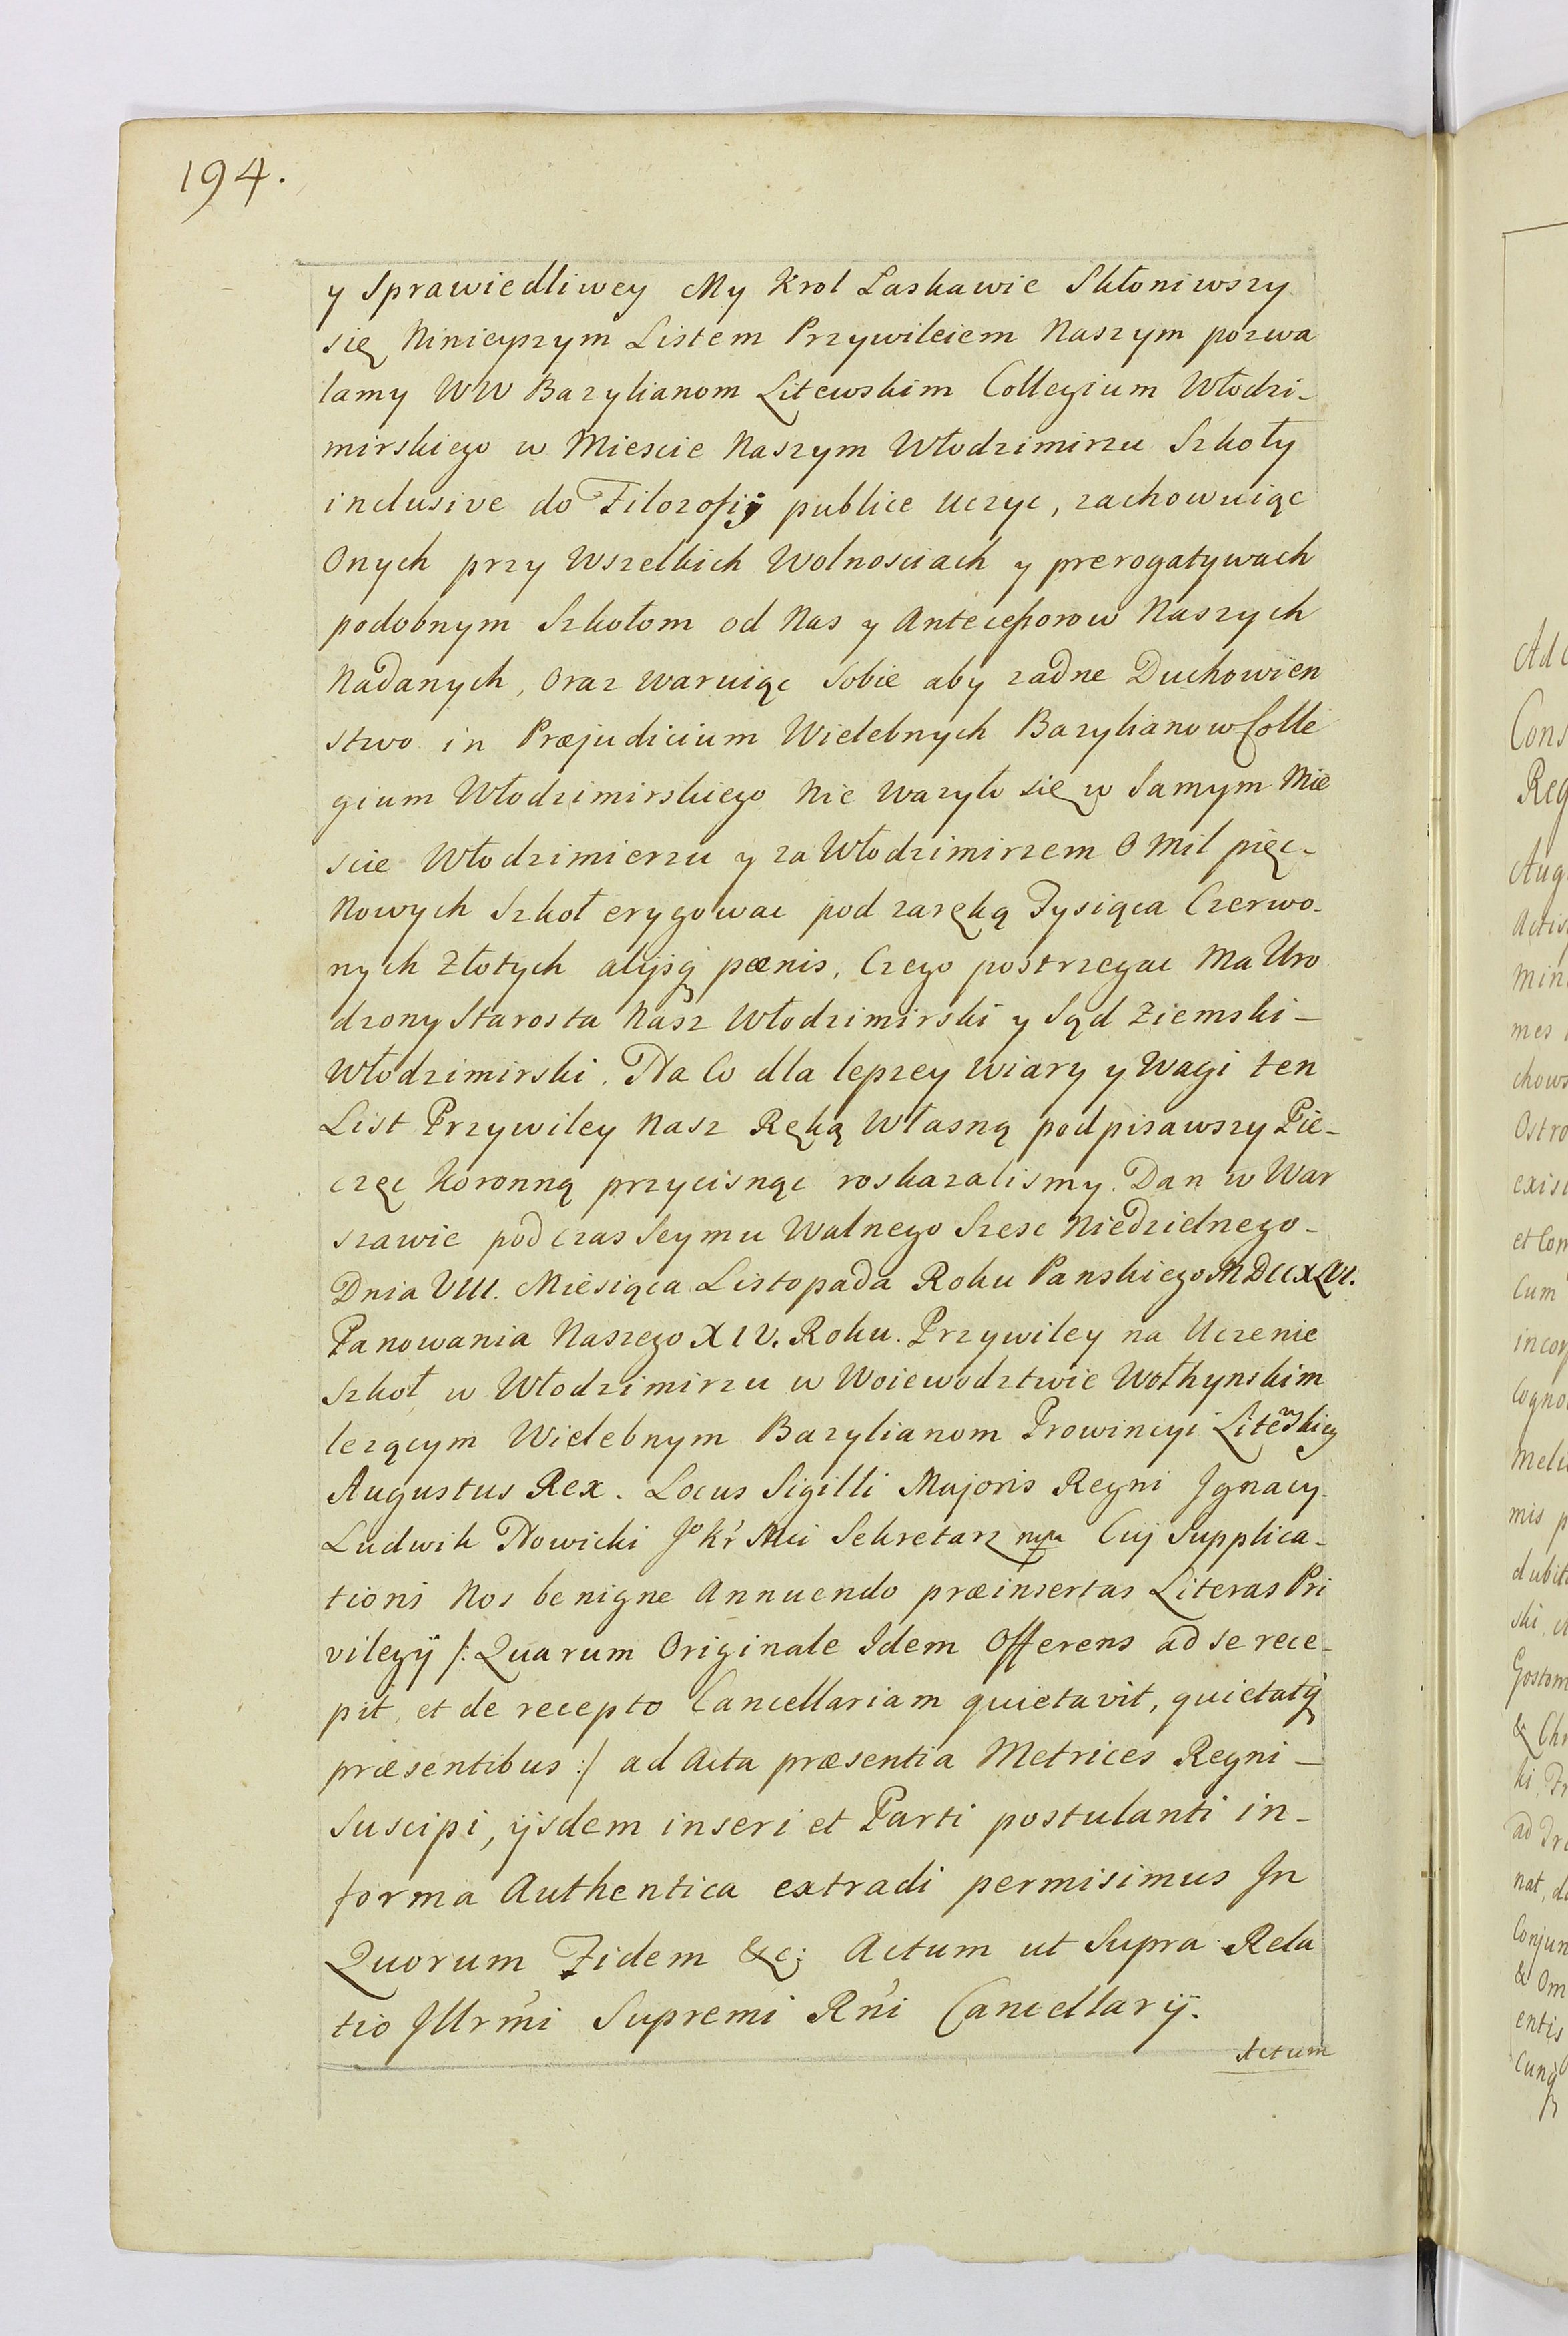 194.
y Sprawiedliwey My Krol Laskawie Skłoniwszy
się Ninieyszym Listem Przywileiem Naszym pozwa
lamy WW Bazylianom Litewskim Collegium Włodzi-
mirskiego w Miescie Naszym Włodzimirzu Szkoły
inclusive do Filozofij publice uczyc, zachowuiąc
Onych przy Wszelkich Wolnosciach y prerogatywach
podobnym Szkołom od Nas y Antecessorow Naszych
Nadanych, Oraz waruiąc Sobie aby zadne Duchowien
stwo in Præjudicium Wielebnych Bazylianow Colle
gium Włodzimirskiego Nie Wazyło się w Samym Mie
scie Włodzimierzu y za Włodzimirzem O Mil pięc-
Nowych Szkoł erygowac pod zaręką Tysiąca Czerwo-
nych Złotych alijsq pœnis, Czego postrzegac Ma Uro
dzony Starosta Nasz Włodzimirski y Sąd Ziemski-
Włodzimirski. Na Co dla lepszey Wiary y Wagi ten
List Przywiley Nasz Ręką Własną podpisawszy Pie-
częc Koronną przycisnąc roskazalismy. Dan w War
szawie podczas Seymu Walnego Szesc Niedzielnego-
Dnia VIII. Miesiąca Listopada Roku Panskiego MDCCXLVI.
Panowania Naszego XIV. Roku. Przywiley na Uczenie
Szkoł w Włodzimirzu w Woiewodztwie Wołhynskim
lezącym Wielebnym Bazylianom Prowincyi Litewskiey
Augustus Rex. Locus Sigilli Majoris Regni Ignacy-
Ludwik Nowicki Jo Kr Mci Sekretarz mpu Cuj Supplica-
tioni Nos benigne Annuendo præinsertas Literas Pri
vilegij /: Quarum Originale Idem Offerens ad se rece-
pit, et de recepto Cancellariam quietavit, quietatq
præsentibus :/ ad Acta præsentia Metrices Regni-
Suscipi, ijsdem inseri et Parti postulanti in-
forma Authentica extradi permisimus In
Quorum Fidem &c: Actum ut Supra Rela
tio Illrmi Supremi Rni Cancellarij.
Actum
Ad
Cons
Reg
Aug
Actis
Min
mes
chows
Ostro
exis
et Com
Cum
incor
Cogno
Melu
mis p
dubit
ski,
Gostom
& Chr
ki
ad
nat, d
Conjun
& Om
entis
cunq